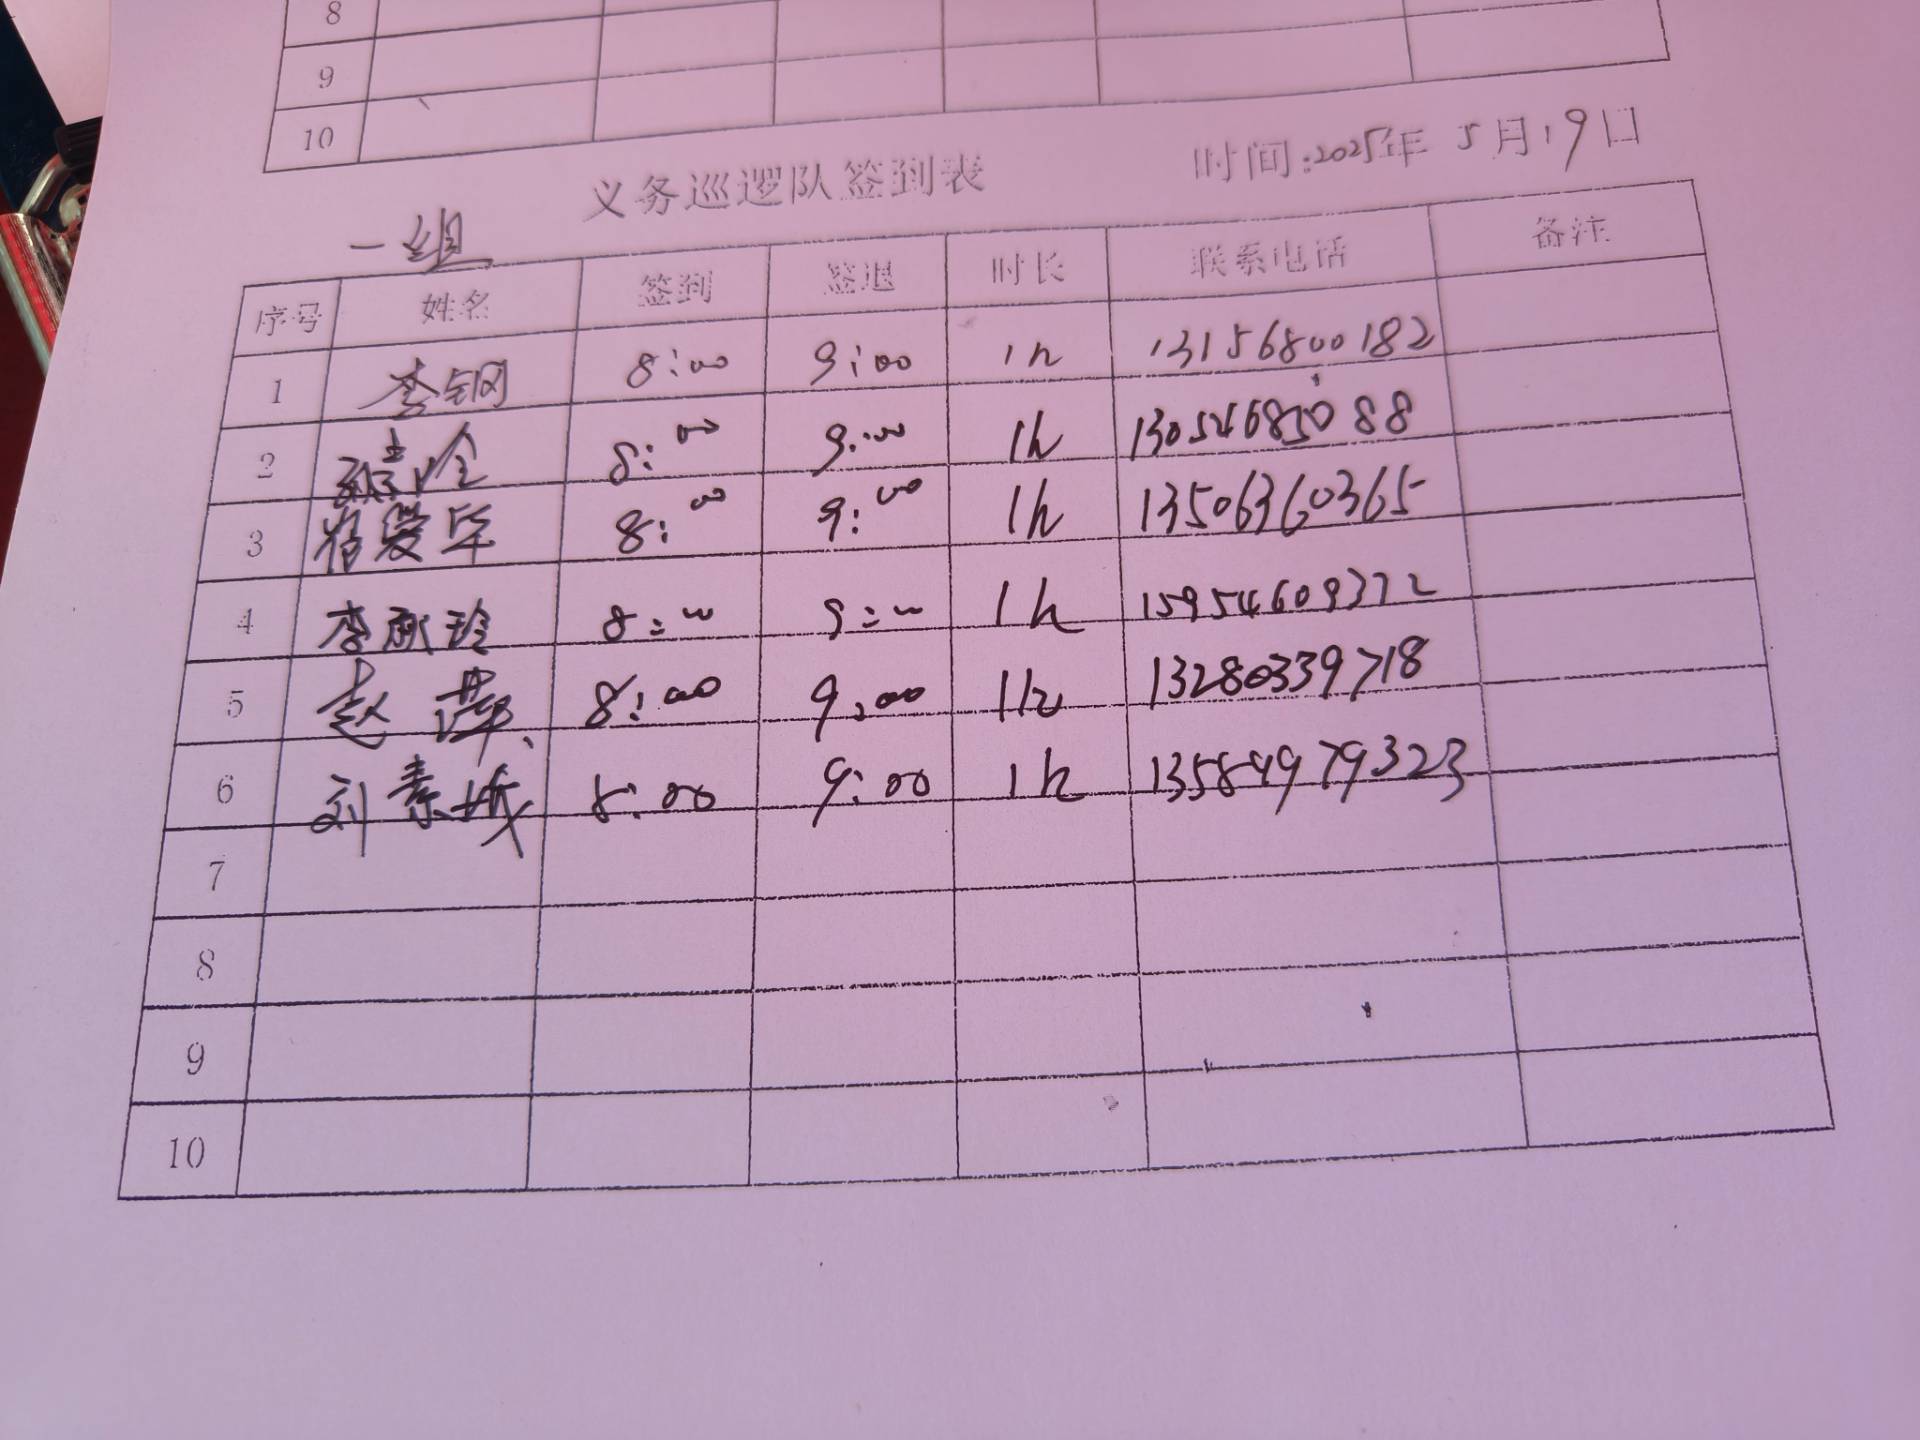 8
9
10
义务巡逻队签到表 时间:2025年 5月19日
一组
序号 姓名 签到 签退 时长 联系电话 备注
1 李钢 8:00 9:00 1h 13156800182
2 8:00 9:00 1h 13054685088
3 爱华 8:00 9:00 1h 13506360365
4 李 玲 8:00 9:00 1h 15954609372
5 赵萍 8:00 9:00 1h 13280339718
6 刘素城 8:00 9:00 1h 13584979323
7
8
9
10